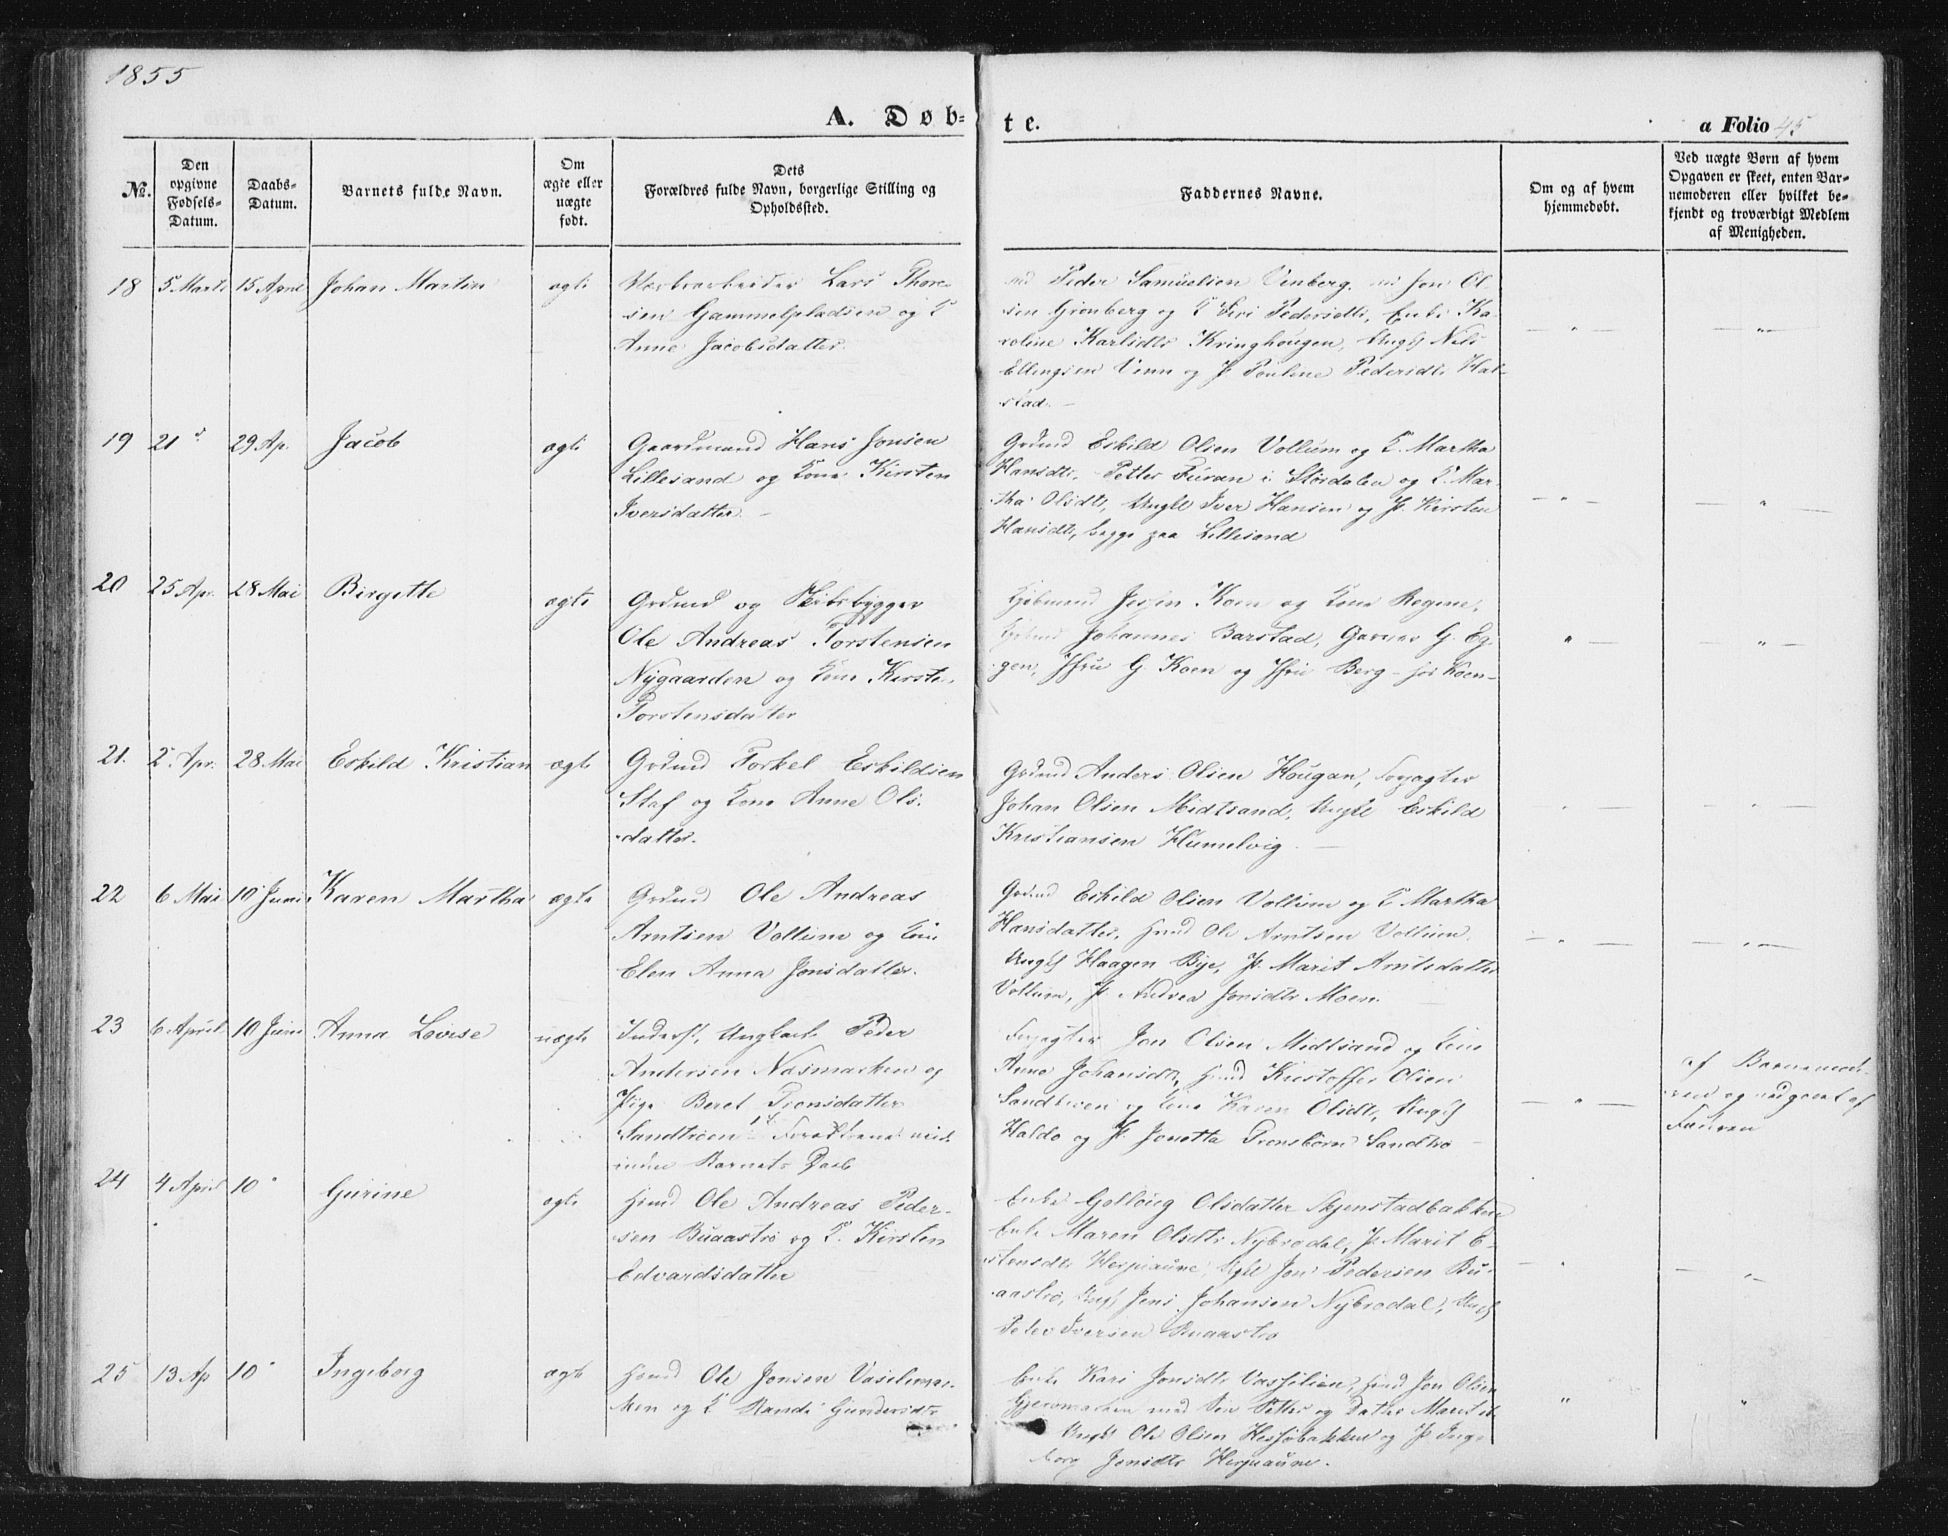 1855
A. Døb-
te.
a Folio 45
No.
Den opgivne Fødsels-Datum.
Daabs-Datum.
Barnets fulde Navn.
Om ægte eller uægte født.
Dets Forældres fulde Navn, borgerlige Stilling og Opholdssted.
Faddernes Navne.
Om og af hvem hjemmedøbt.
Ved uægte Børn af hvem Opgaven er skeet, enten Barnemoderen eller hvilket bekjendt og troværdigt Medlem af Menigheden.
18 5 Marts 15 April Johan Martin ægte
Lars Thore-
sen Gammelpladsen og K
Anne Jacobsdatter.
Peder Samuelsen Venberg. Jon Ol-
sen Grønberg og K Siri Pedersdtr, Enke Ka-
roline Karlsdtr Kringhougen, Ungk Nils
Ellingsen Venn og P. Pauline Pedersdtr Hal-
stad. —
19 21 d. 29 Ap. Jacob ægte
Gaardmand Hans Jonsen
Lillesand og Kone Kirsten
Iversdatter. —
Grdmd Eskild Olsen Vollum og K. Martha
Hansdtr, Petter Furan i Størdalen og K. Mar-
tha Olsdtr, Ungkl Iver Hansen og P. Kirsten
Hansdtr, begge paa Lillesand
20 25 Apr. 28 Mai Birgitte ægte
Grdmd og Skibsbygger
Ole Andreas Torstensen
Nygaarden og Kone Kirsten
Torstensdatter
Kjøbmand Jesper Koen og Kone Regine,
Johannes Barstad, Garver G. Eg-
gen, Jfru G. Koen og Jfru Berg - hos Koen-
21. 2 Apr. 28 Mai Eskild Kristian ægte
Grdmd Torkel Eskildsen
Staf og Kone Anne Ols-
datter.
Grdmd Anders Olsen Hougan, Forpagter
Johan Olsen Midtsand, Ungkl Eskild
Kristiansen Hummelvig. —
22 6 Mai 10 Juni Karen Martha ægte
Grdmd Ole Andreas
Arntsen Vollum og Kone
Elen Anna Jonsdatter.
Grdmd Eskild Olsen Vollum og K Martha
Hansdatter, Hmd Ole Arntsen Vollum.
Ungk Haagen Bye, P. Marit Arntsdatter
Vollum, P. Andrea Jonsdtr Moen.
23 6 April 10 Juni Anna Lovise uægte
Inderst, Ungkarl Peder
Andersen Næsmarken og
Pige Beret Tronsdatter
Sandtrøen
Barnets Daab
Forpagter Jon Olsen Midtsand og Kone
Anne Johansdtr, Hmd Kristoffer Olsen
Sandtrøen og Kone Karen Olsdtr, Ungk
Haldo og P. Jonetta Tronsbørn Sandtrø
af Barnemod-
ren og udgivet af
Faderen
24 4 April 10 " Gurine ægte
Hmd Ole Andreas Peder-
sen Buaastrø og K. Kirsten
Edvardsdatter
Enke Golloug Olsdatter Skjenstadbakken
Enke Maren Olsdtr Nybrodal, P. Marit E-
stensdtr Herjuaune, Ugkl Jon Pedersen Bu-
aastrø, Ungk Jens Johansen Nybrodal, Ungk
Peter Iversen Buaastrø
25 13 Ap 10 " Ingeborg ægte
Hmd Ole Jonsen Vaslemar-
ken og K Randi Gundersdtr
Enke Kari Jonsdtr Vasslien, Hmd Jon Olsen
Gjevremarken med Søn Petter og Datter Marit
Ungk Ole Olsen Hessjøbakken og P Inge-
borg Jonsdtr Herjuaune.